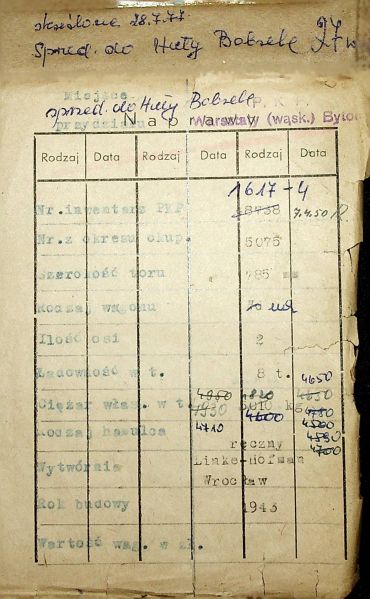 skreślono 28.7.77
Sprzed. do Huty Bobrek 27 w
Miejsce
sprzed. do Huty Bobrek P.K.P.
przydziału Naprawy Warsztaty (wąsk.) Bytom
Rodzaj Data Rodzaj Data Rodzaj Data
1617-4
Nr.inwentarz PKP 8738 7.4.50
Nr.z okresu okup. 5075
Szerokość toru 785 mm
Rodzaj wagonu
Ilość osi 2
Ładowność w t. 8 t. 4650
4950 4820 4650
Ciężar włas. w t. 5010 kg 4750
4930 4600 4500
Rodzaj hamulca 4710 4590
ręczny 4700
Wytwórnia Linke-Hofman
Wrocław
Rok budowy 1943
Wartość wag. w zł.